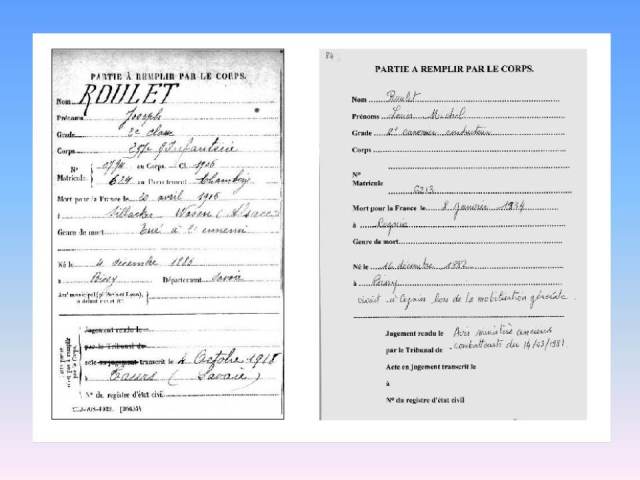 PARTIE À REMPLIR PAR LE CORPS.
Nom ROULET
Prénoms Joseph
Grade 2e classe
Corps 297e R.I. Infanterie
N° Matricule
au Corps. Cl. 1906
624 au Recrutement Chambéry
Mort pour la France le 20 avril 1916
à (Alsace)
Genre de mort Tué à l'ennemi
Né le 4 décembre 1886
à Bissy Département Savoie
Arr' municipal (p' Paris et Lyon),
à défaut rue et N°
Jugement rendu le
par le Tribunal de
acte ou jugement transcrit le 4 Octobre 1918
à (Savoie)
N° du registre d'état civil
84
PARTIE A REMPLIR PAR LE CORPS.
Nom Roulet
Prénoms Louis Michel
Grade 2e canonnier conducteur
Corps
N°
Matricule
6213
Mort pour la France le 8 Janvier 1934
à Cognin
Genre de mort
Né le 16 décembre 1882
à Bissy
vivait à Cognin lors de la mobilisation générale
Jugement rendu le Avis ministère anciens
par le Tribunal de combattants du 14/03/1981
Acte en jugement transcrit le
à
N° du registre d'état civil